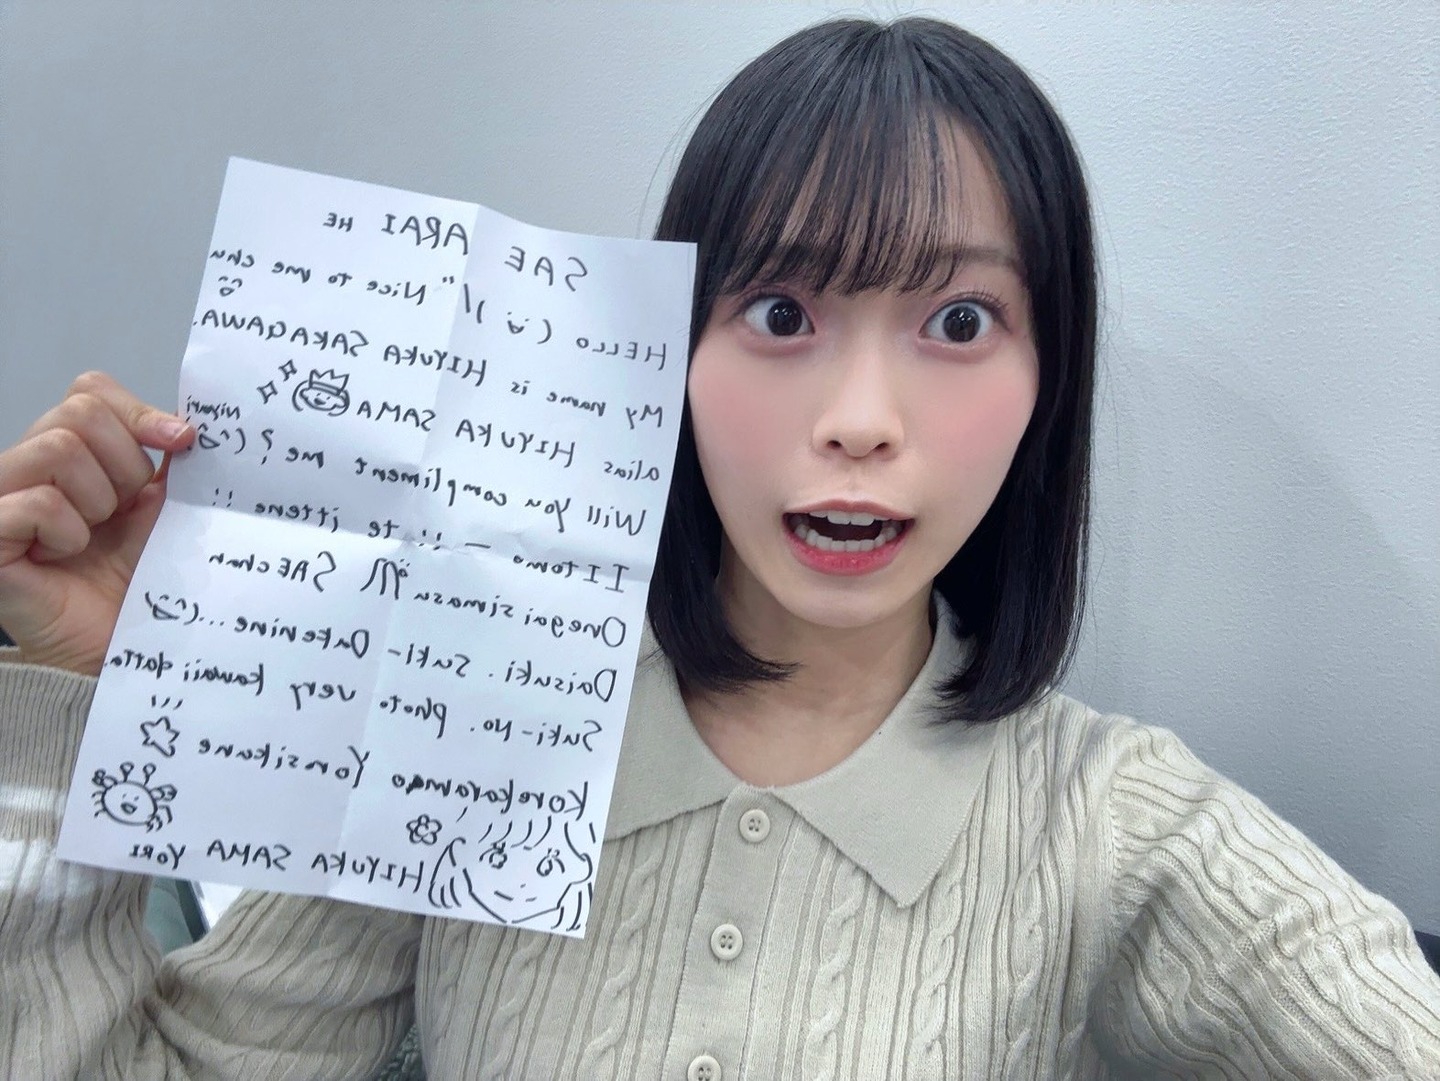 SAE ARAI HE
HELLO (ö )/" Nice to me chu
My name is HIYUKA SAKAGAWA.
alias HIYUKA SAMA
Will you compliment me? (^^) niyari
IItomo ー !! te ittene !!
Onegai simasu m SAE chan
Daisuki. Suki- Dakenine...(^^)
Suki-No. photo very kawaii datta.
Korekaramo Yorosikune
HIYUKA SAMA YORI